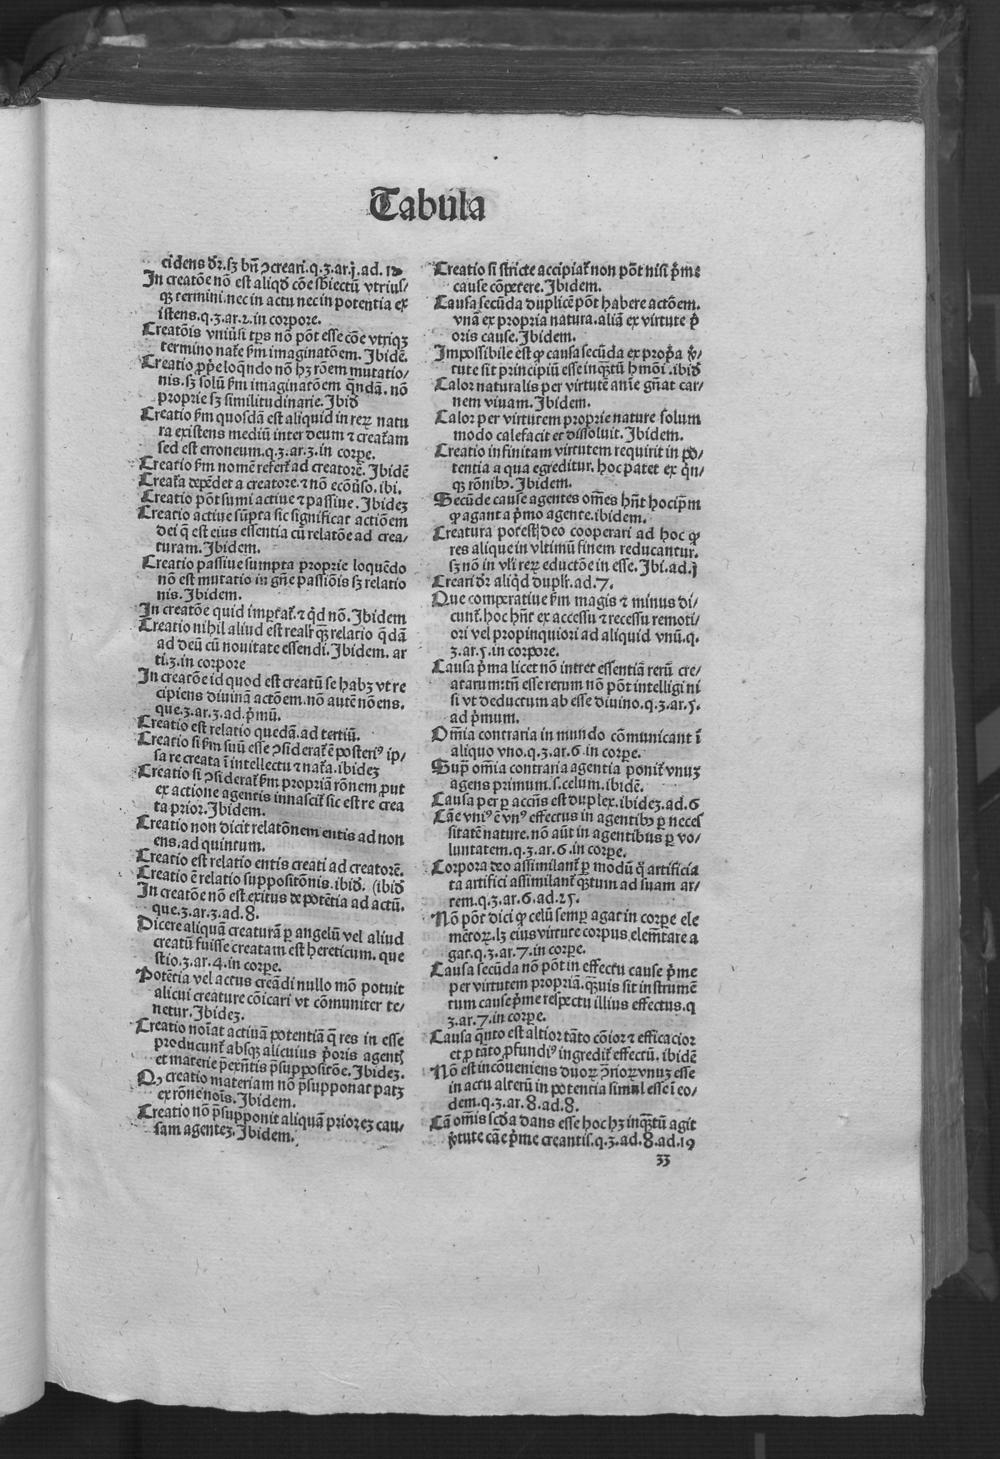 Tabula
cidens dr̄.sꝫ bn̄ ꝯcreari.q.3.ar.j.ad.12
In creatōe nō est aliqd̄ cōe sb̄iectū vtrius/
qꝫ termini.nec in actu nec in potentia ex
istens.q.3.ar.2.in corpore.
Creatōis vniūsi tp̄s nō pōt esse cōe vtriqꝫ
termino nat̄e ẜm imaginatōem. Ibidē.
Creatio ꝓp̄e loqn̄do nō hꝫ rōem mutatio/
nis.sꝫ solū ẜm imaginatōem qn̄dā. nō
proprie sꝫ similitudinarie. Ibid̄
Creatio ẜm quosdā est aliquid in reꝝ natu
ra existens mediū inter deum ⁊ creat̄am
sed est erroneum.q.3.ar.3.in corꝑe.
Creatio ẜm nomē refert̄ ad creatorē. Ibidē
Creat̄a depēdet a creatore.⁊ nō ecōuso.ibi.
Creatio pōt sumi actiue ⁊ passiue. Ibideꝫ
Creatio actiue sūpta sic significat actiōem
dei q̄ est eius essentia cū relatōe ad crea/
turam. Ibidem.
Creatio passiue sumpta proprie loquēdo
nō est mutatio in gn̄e passiōis sꝫ relatio
nis. Ibidem.
In creatōe quid imꝑtat̄.⁊ qd̄ nō. Ibidem
Creatio nihil aliud est realr̄ qꝫ relatio q̄dā
ad deū cū nouitate essendi. Ibidem. ar
ti.3.in corpore
In creatōe id quod est creatū se habꝫ vt re
cipiens diuinā actōem.nō autē nō ens.
que.3.ar.3.ad.pm̄ū.
Creatio est relatio quedā.ad tertiū.
Creatio si ẜm suū esse ꝯsiderat̄ ē posteriꝰ ip/
sa re creata ī intellectu ⁊ nat̄a.ibideꝫ
Creatio si ꝯsiderat̄ ẜm propriā rōnem ꝓut
ex actione agentis innascit̄ sic est re crea
ta prior. Ibidem.
Creatio non dicit relatōnem entis ad non
ens.ad quintum.
Creatio est relatio entis creati ad creatorē.
Creatio ē relatio suppositōnis.ibid̄. (ibid̄
In creatōe nō est exitus de potētia ad actū.
que.3.ar.3.ad.8.
Dicere aliquā creaturā ꝑ angelū vel aliud
creatū fuisse creatam est hereticum. que
stio.3.ar.4.in corꝑe.
Potētia vel actus creādi nullo mō potuit
alicui creature cōicari vt cōmuniter te/
netur. Ibideꝫ.
Creatio noīat actiuā potentiā q̄ res in esse
producunt̄ absqꝫ alicuius p̄oris agentꝭ
et materie p̄exn̄tis p̄suppositōe. Ibideꝫ.
Qꝫ creatio materiam nō p̄supponat patꝫ
ex rōne noīs. Ibidem.
Creatio nō p̄supponit aliquā prioreꝫ cau/
sam agenteꝫ. Ibidem.
Creatio si stricte accipiat̄ non pōt nisi p̄me
cause cōpetere. Ibidem.
Causa secūda duplicē pōt habere actōem.
vnā ex propria natura. aliā ex virtute p̄
oris cause. Ibidem.
Impossibile est ꝙ causa secūda ex prop̄a v̄/
tute sit principiū esse inqꝫtū hmōi.ibid̄
Calor naturalis per virtutē anīe gn̄at car/
nem viuam. Ibidem.
Calor per virtutem proprie nature solum
modo calefacit et dissoluit. Ibidem.
Creatio infinitam virtutem requirit in po/
tentia a qua egreditur. hoc patet ex qn̄/
qꝫ rōnibꝰ. Ibidem.
Secūde cause agentes om̄es hn̄t hocip̄m
ꝙ agant a p̄mo agente.ibidem.
Creatura potest deo cooperari ad hoc ꝙ
res alique in vltimū finem reducantur.
sꝫ nō in vl̄i reꝝ eductōe in esse. Ibi.ad.j
Creari dr̄ aliqd̄ duplr̄.ad.7.
Que comperatiue ẜm magis ⁊ minus di/
cunt̄.hoc hn̄t ex accessu ⁊ recessu remoti/
ori vel propinquiori ad aliquid vnū.q.
3.ar.5.in corpore.
Causa p̄ma licet nō intret essentiā rerū cre/
atarum:tn̄ esse rerum nō pōt intelligi ni
si vt deductum ab esse diuino.q.3.ar.5.
ad p̄mum.
Om̄ia contraria in mundo cōmunicant ī
aliquo vno.q.3.ar.6.in corꝑe.
Supͣ om̄ia contraria agentia ponit̄ vnuꝫ
agens primum.s.celum.ibidē.
Causa per ꝑ accn̄s est duplex.ibideꝫ.ad.6
Cāe vniꝰ ē vnꝰ effectus in agentibꝰ ꝑ neces
sitatē nature. nō aūt in agentibus ꝑ vo/
luntatem.q.3.ar.6.in corꝑe.
Corpora deo assimilant̄ ꝑ modū q̊ artificia
ta artifici assimilant̄ qꝫtum ad suam ar/
tem.q.3.ar.6.ad.25.
Nō pōt dici ꝙ celū semꝑ agat in corꝑe ele
mētoꝝ.lꝫ eius virtute corpus elemn̄tare a
gat.q.3.ar.7.in corꝑe.
Causa secūda nō pōt in effectu cause p̄me
per virtutem propriā.qꝫuis sit instrumē
tum cause p̄me respectu illius effectus.q
3.ar.7.in corꝑe.
Causa qn̄to est altior tāto cōior ⁊ efficacior
et ꝑ tāto ꝓfundiꝰ ingredit̄ effectū.ibidē
Nō est incōueniens duoꝝ p̄rioꝝ vnuꝫ esse
in actu alterū in potentia simul esse ī eo/
dem.q.3.ar.8.ad.8.
Cā om̄is scd̄a dans esse hoc hꝫ inqꝫtū agit
v̄tute cāe p̄me creantis.q.3.ad.8.ad.19
33